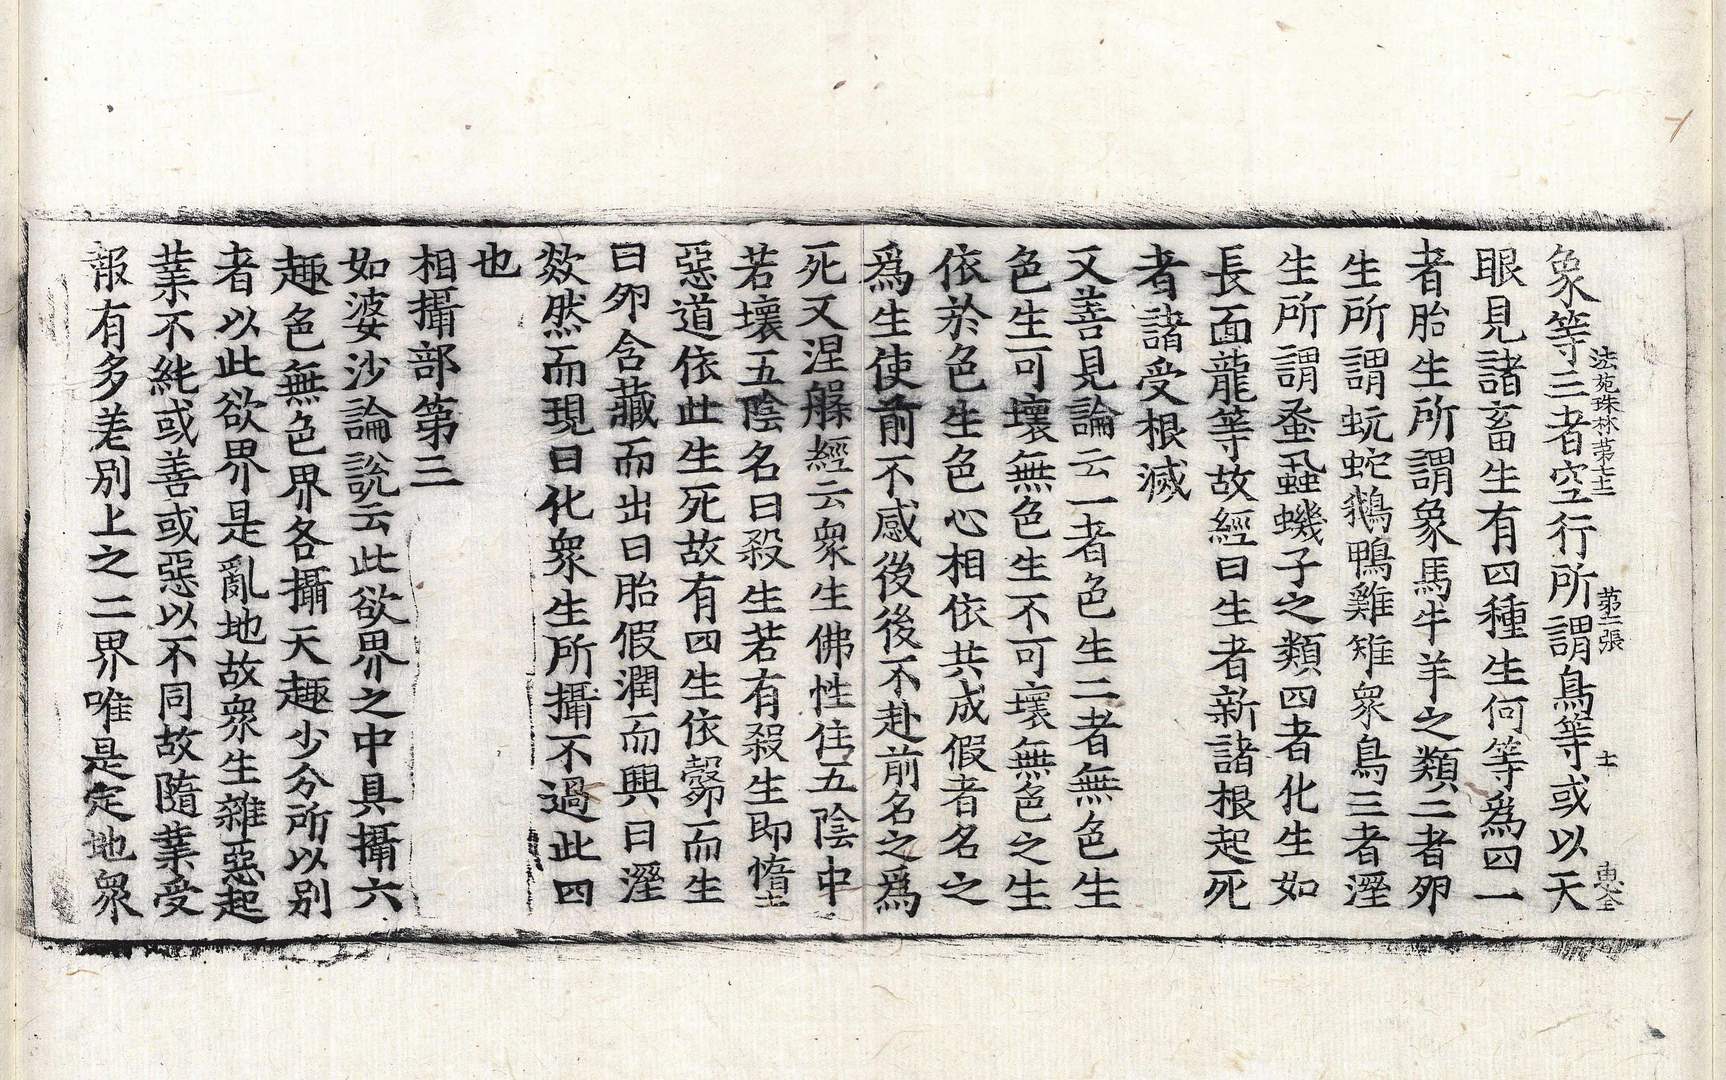 法苑珠林第七十二 第二張 士 惠全
象等三者空行所謂鳥等或以天
眼見諸畜生有四種生何等爲四一
者胎生所謂象馬牛羊之類二者卵
生所謂蚖蛇鵝鴨雞雉衆鳥三者溼
生所謂蚤蝨蟣子之類四者化生如
長面龍等故經曰生者新諸根起死
者諸受根滅
又善見論云一者色生二者無色生
色生可壞無色生不可壞無色之生
依於色生色心相依共成假者名之
爲生使前不感後後不赴前名之爲
死又涅槃經云衆生佛性住五陰中
若壞五陰名曰殺生若有殺生即墮
惡道依此生死故有四生依㲉而生
曰卵含藏而出曰胎假潤而興曰溼
欻然而現曰化衆生所攝不過此四
也
相攝部第三
如婆沙論說云此欲界之中具攝六
趣色無色界各攝天趣少分所以別
者以此欲界是亂地故衆生雜惡起
業不純或善或惡以不同故隨業受
報有多差別上之二界唯是定地衆